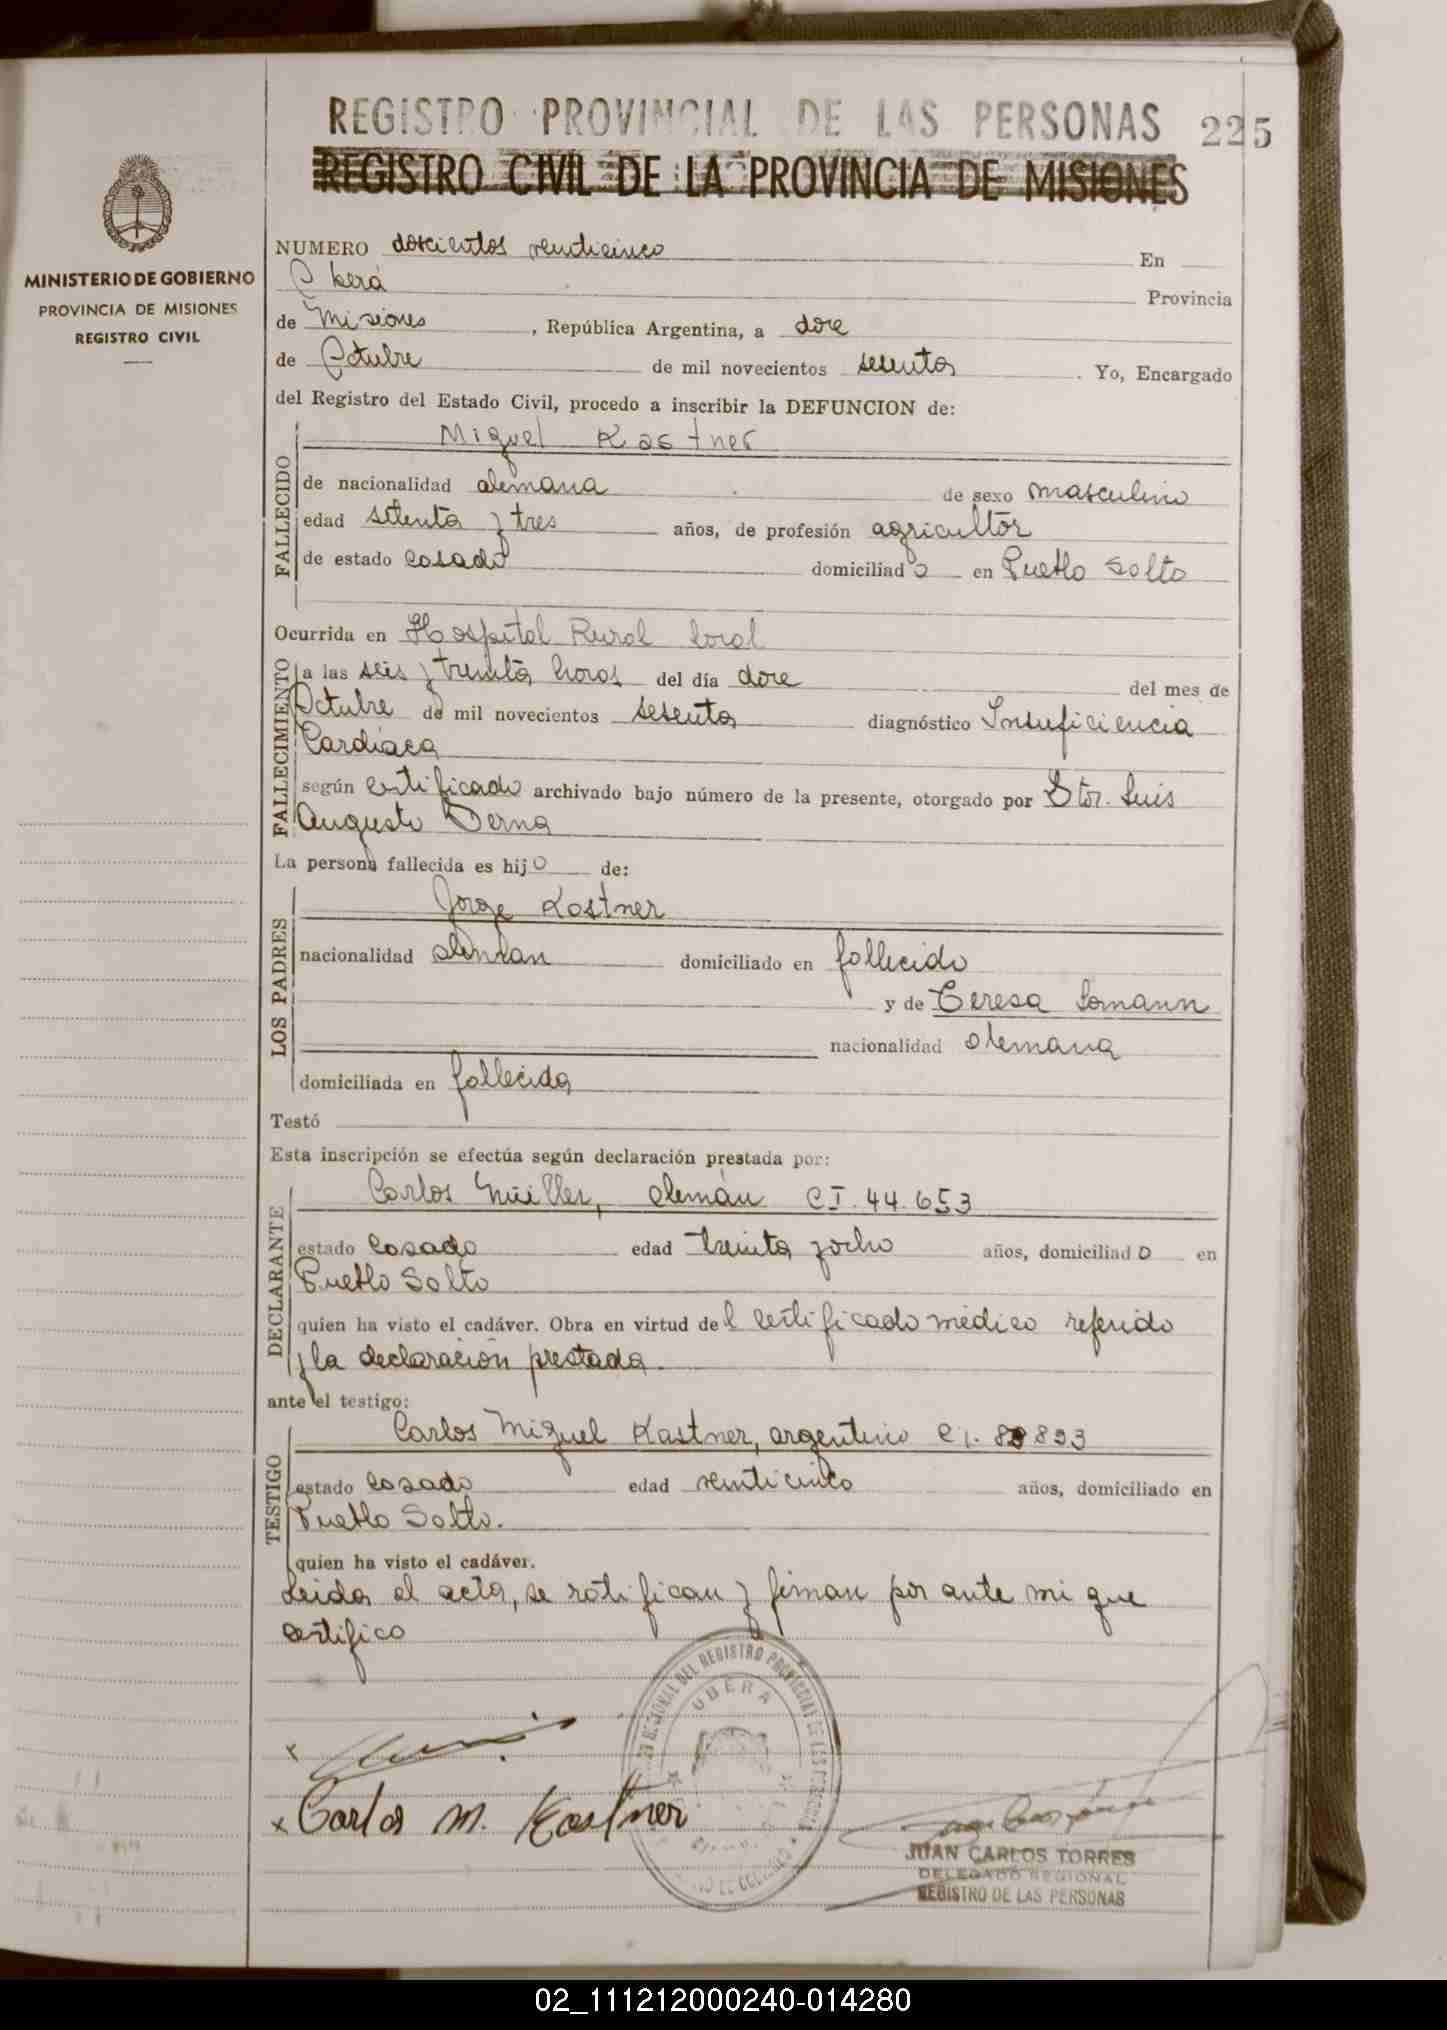 REGISTRO PROVINCIAL DE LAS PERSONAS 225
REGISTRO CIVIL DE LA PROVINCIA DE MISIONES
MINISTERIO DE GOBIERNO
PROVINCIA DE MISIONES
REGISTRO CIVIL
NUMERO doscientos veinticinco En
Oberá Provincia
de Misiones, República Argentina, a doce
de Octubre de mil novecientos sesenta. Yo, Encargado
del Registro del Estado Civil, procedo a inscribir la DEFUNCION de:
FALLECIDO
Miguel Kastner
de nacionalidad alemana de sexo masculino
edad setenta y tres años, de profesión agricultor
de estado casado domiciliado en Puerto Salto
Ocurrida en Hospital Rural local
FALLECIMIENTO
a las seis y treinta horas del día doce del mes de
Octubre de mil novecientos sesenta diagnóstico Insuficiencia
Cardíaca
según certificado archivado bajo número de la presente, otorgado por Dtor. Luis
Augusto Derna
La persona fallecida es hijo de:
LOS PADRES
Jorge Kastner
nacionalidad alemán domiciliado en fallecido
y de Teresa Lomann
nacionalidad alemana
domiciliada en fallecida
Testó
Esta inscripción se efectúa según declaración prestada por:
DECLARANTE
Carlos Müller, alemán CI. 44.653
estado casado edad treinta y ocho años, domiciliado en
Pueblo Salto
quien ha visto el cadáver. Obra en virtud del certificado médico referido
y la declaración prestada.
ante el testigo:
TESTIGO
Carlos Miguel Kastner, argentino CI. 893
estado casado edad veinticinco años, domiciliado en
Pueblo Salto.
quien ha visto el cadáver.
Leida el acta, se ratifican y firman por ante mi que
certifico
DEL REGISTRO PROVINCIAL DE LAS PERSONAS
OBERA
x Carlos M. Kastner
JUAN CARLOS TORRES
DELEGADO REGIONAL
REGISTRO DE LAS PERSONAS
02_111212000240-014280